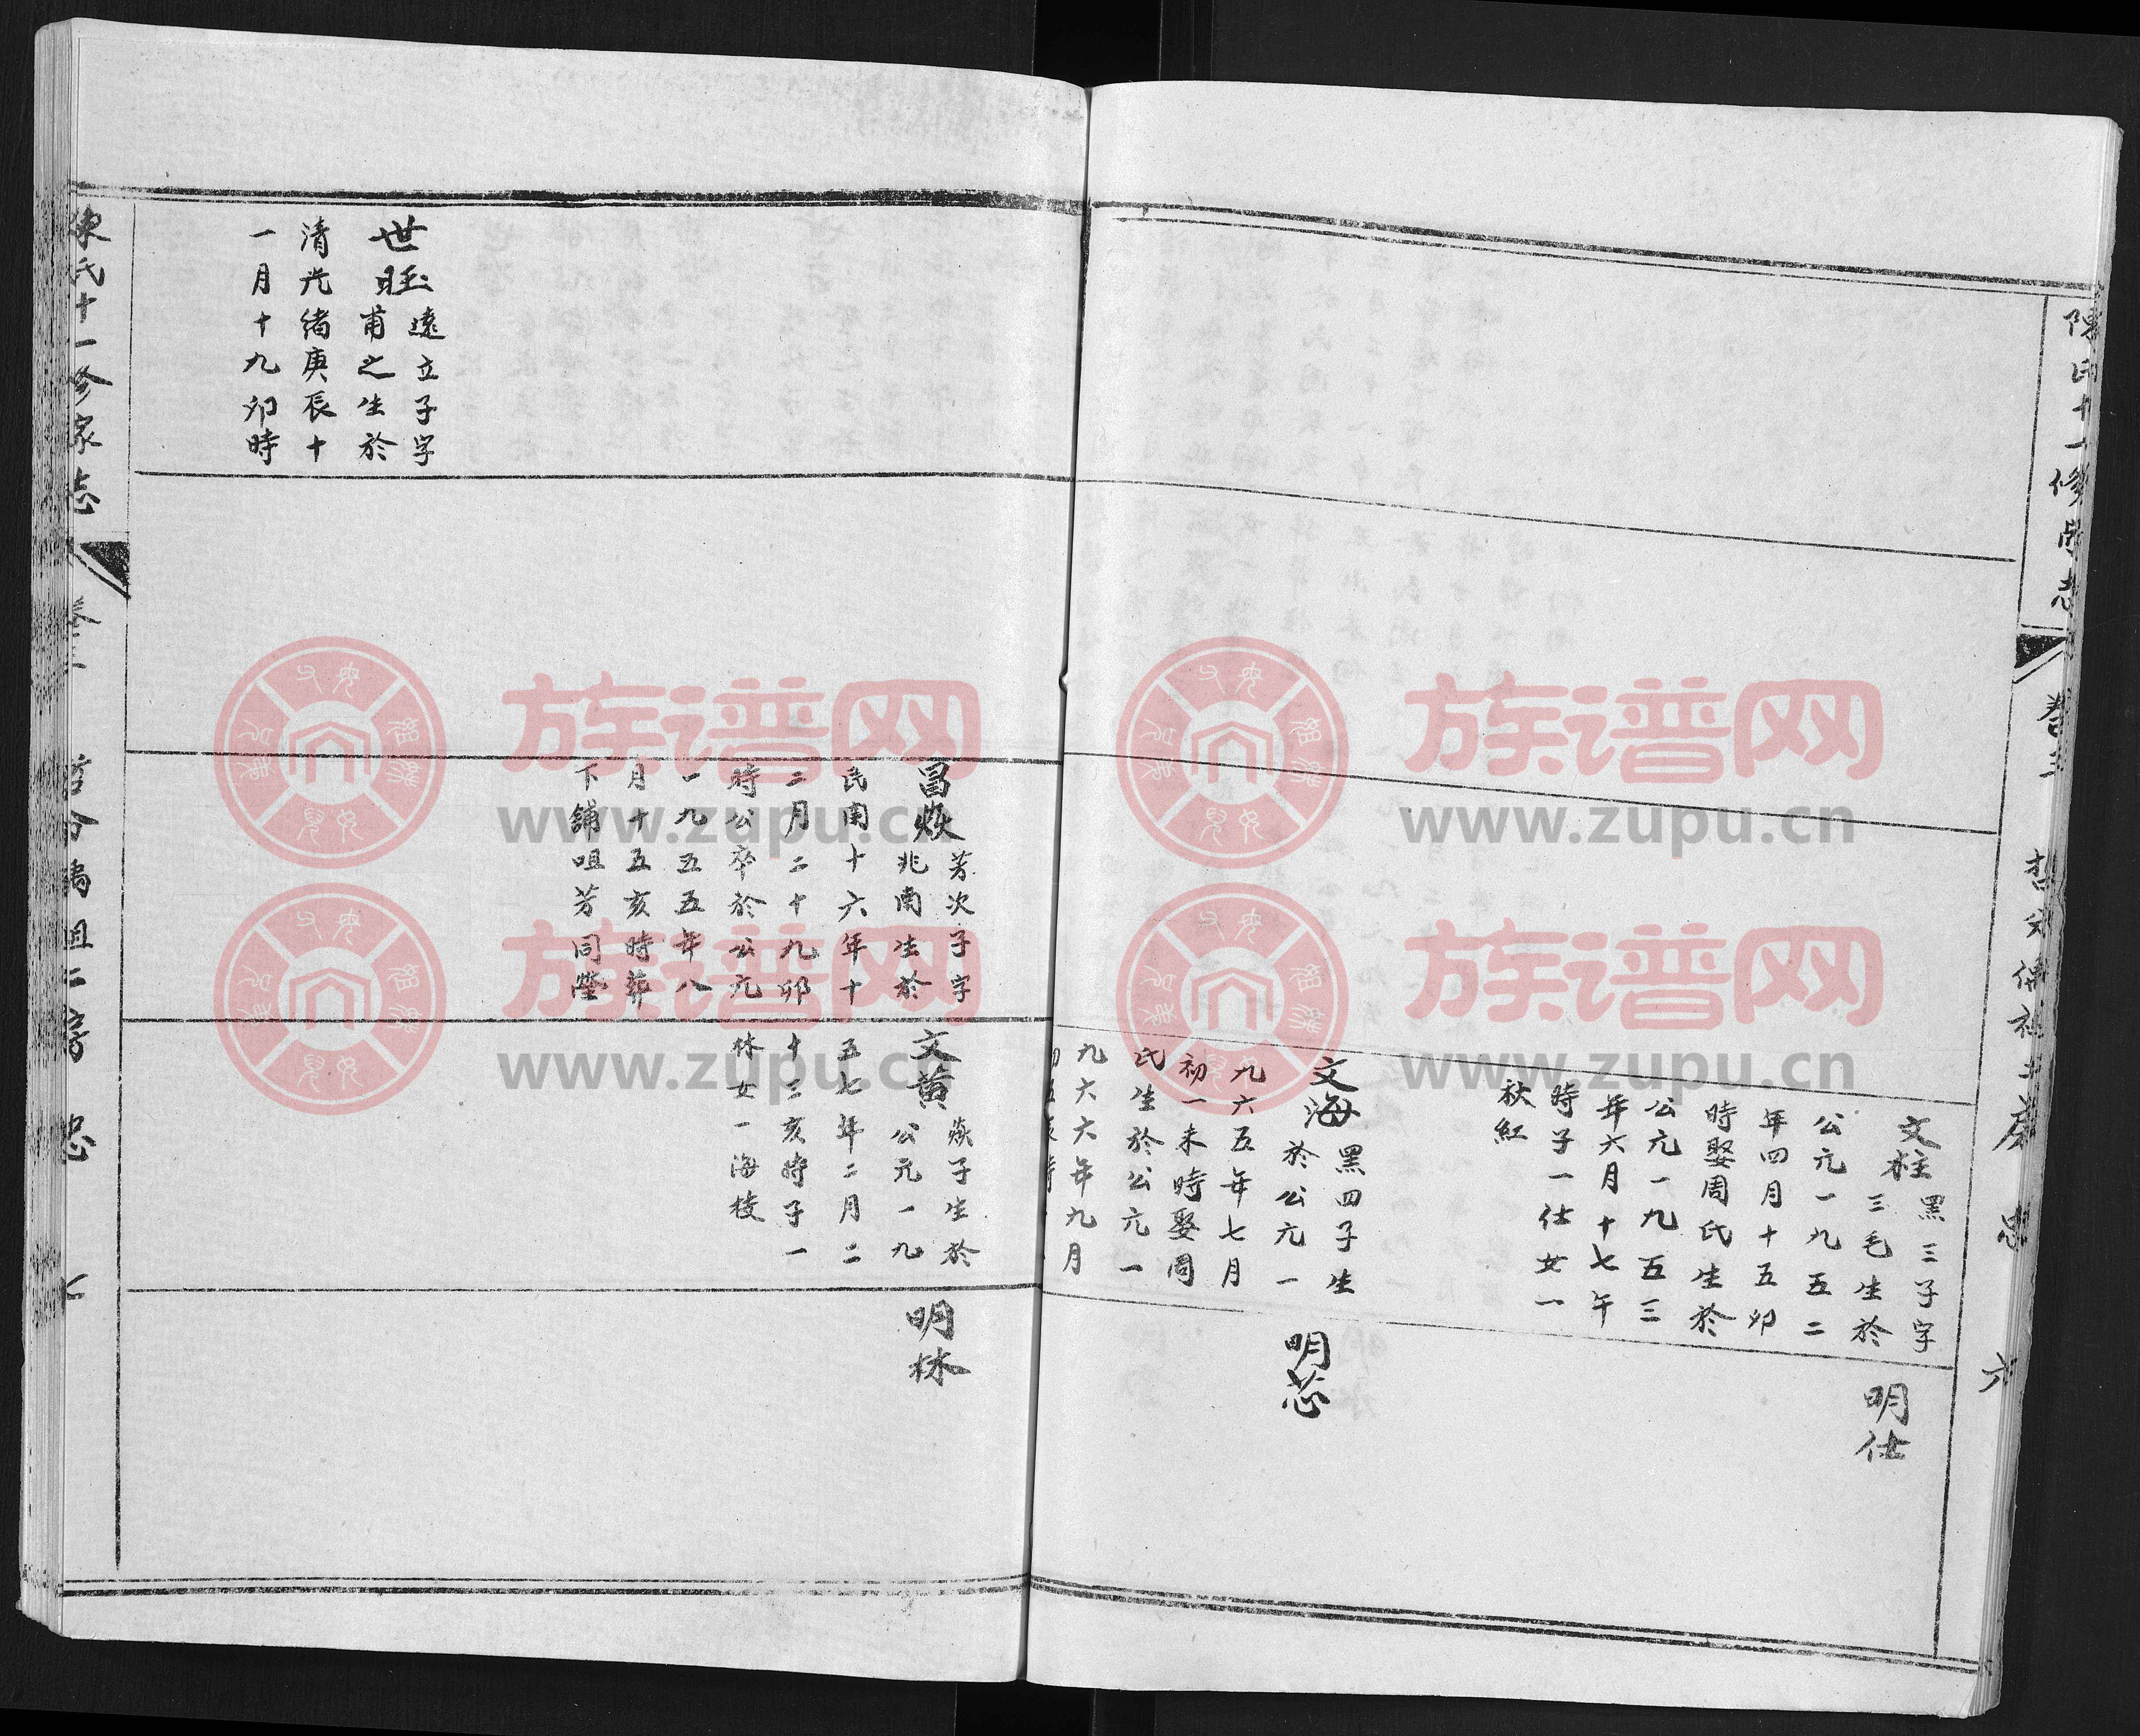 陳氏十一修家志
卷三
六
文柱黑三子字
三毛生於
公元一九五二
年四月十五卯
時娶周氏生於
公元一九五三
年六月十七午
時子一仕女一
秋紅
明仕
文海黑四子生
於公元一
九六五年七月
初一未時娶周
氏生於公元一
九六六年九月
明芯
昌焱芳次子字
兆南生於
民国十六年十
二月二十九卯
時公卒於公元
一九五五年八
月十五亥時葬
下鋪咀芳同塋
文黄焱子生於
公元一九
五七年二月二
十三亥時子一
林女一海枝
明林
世旺遠立子字
甫之生於
清光緒庚辰十
一月十九卯時
陳氏十一修家志
卷三
七
族谱网
www.zupu.cn
族谱网
www.zupu.cn
族谱网
www.zupu.cn
族谱网
www.zupu.cn